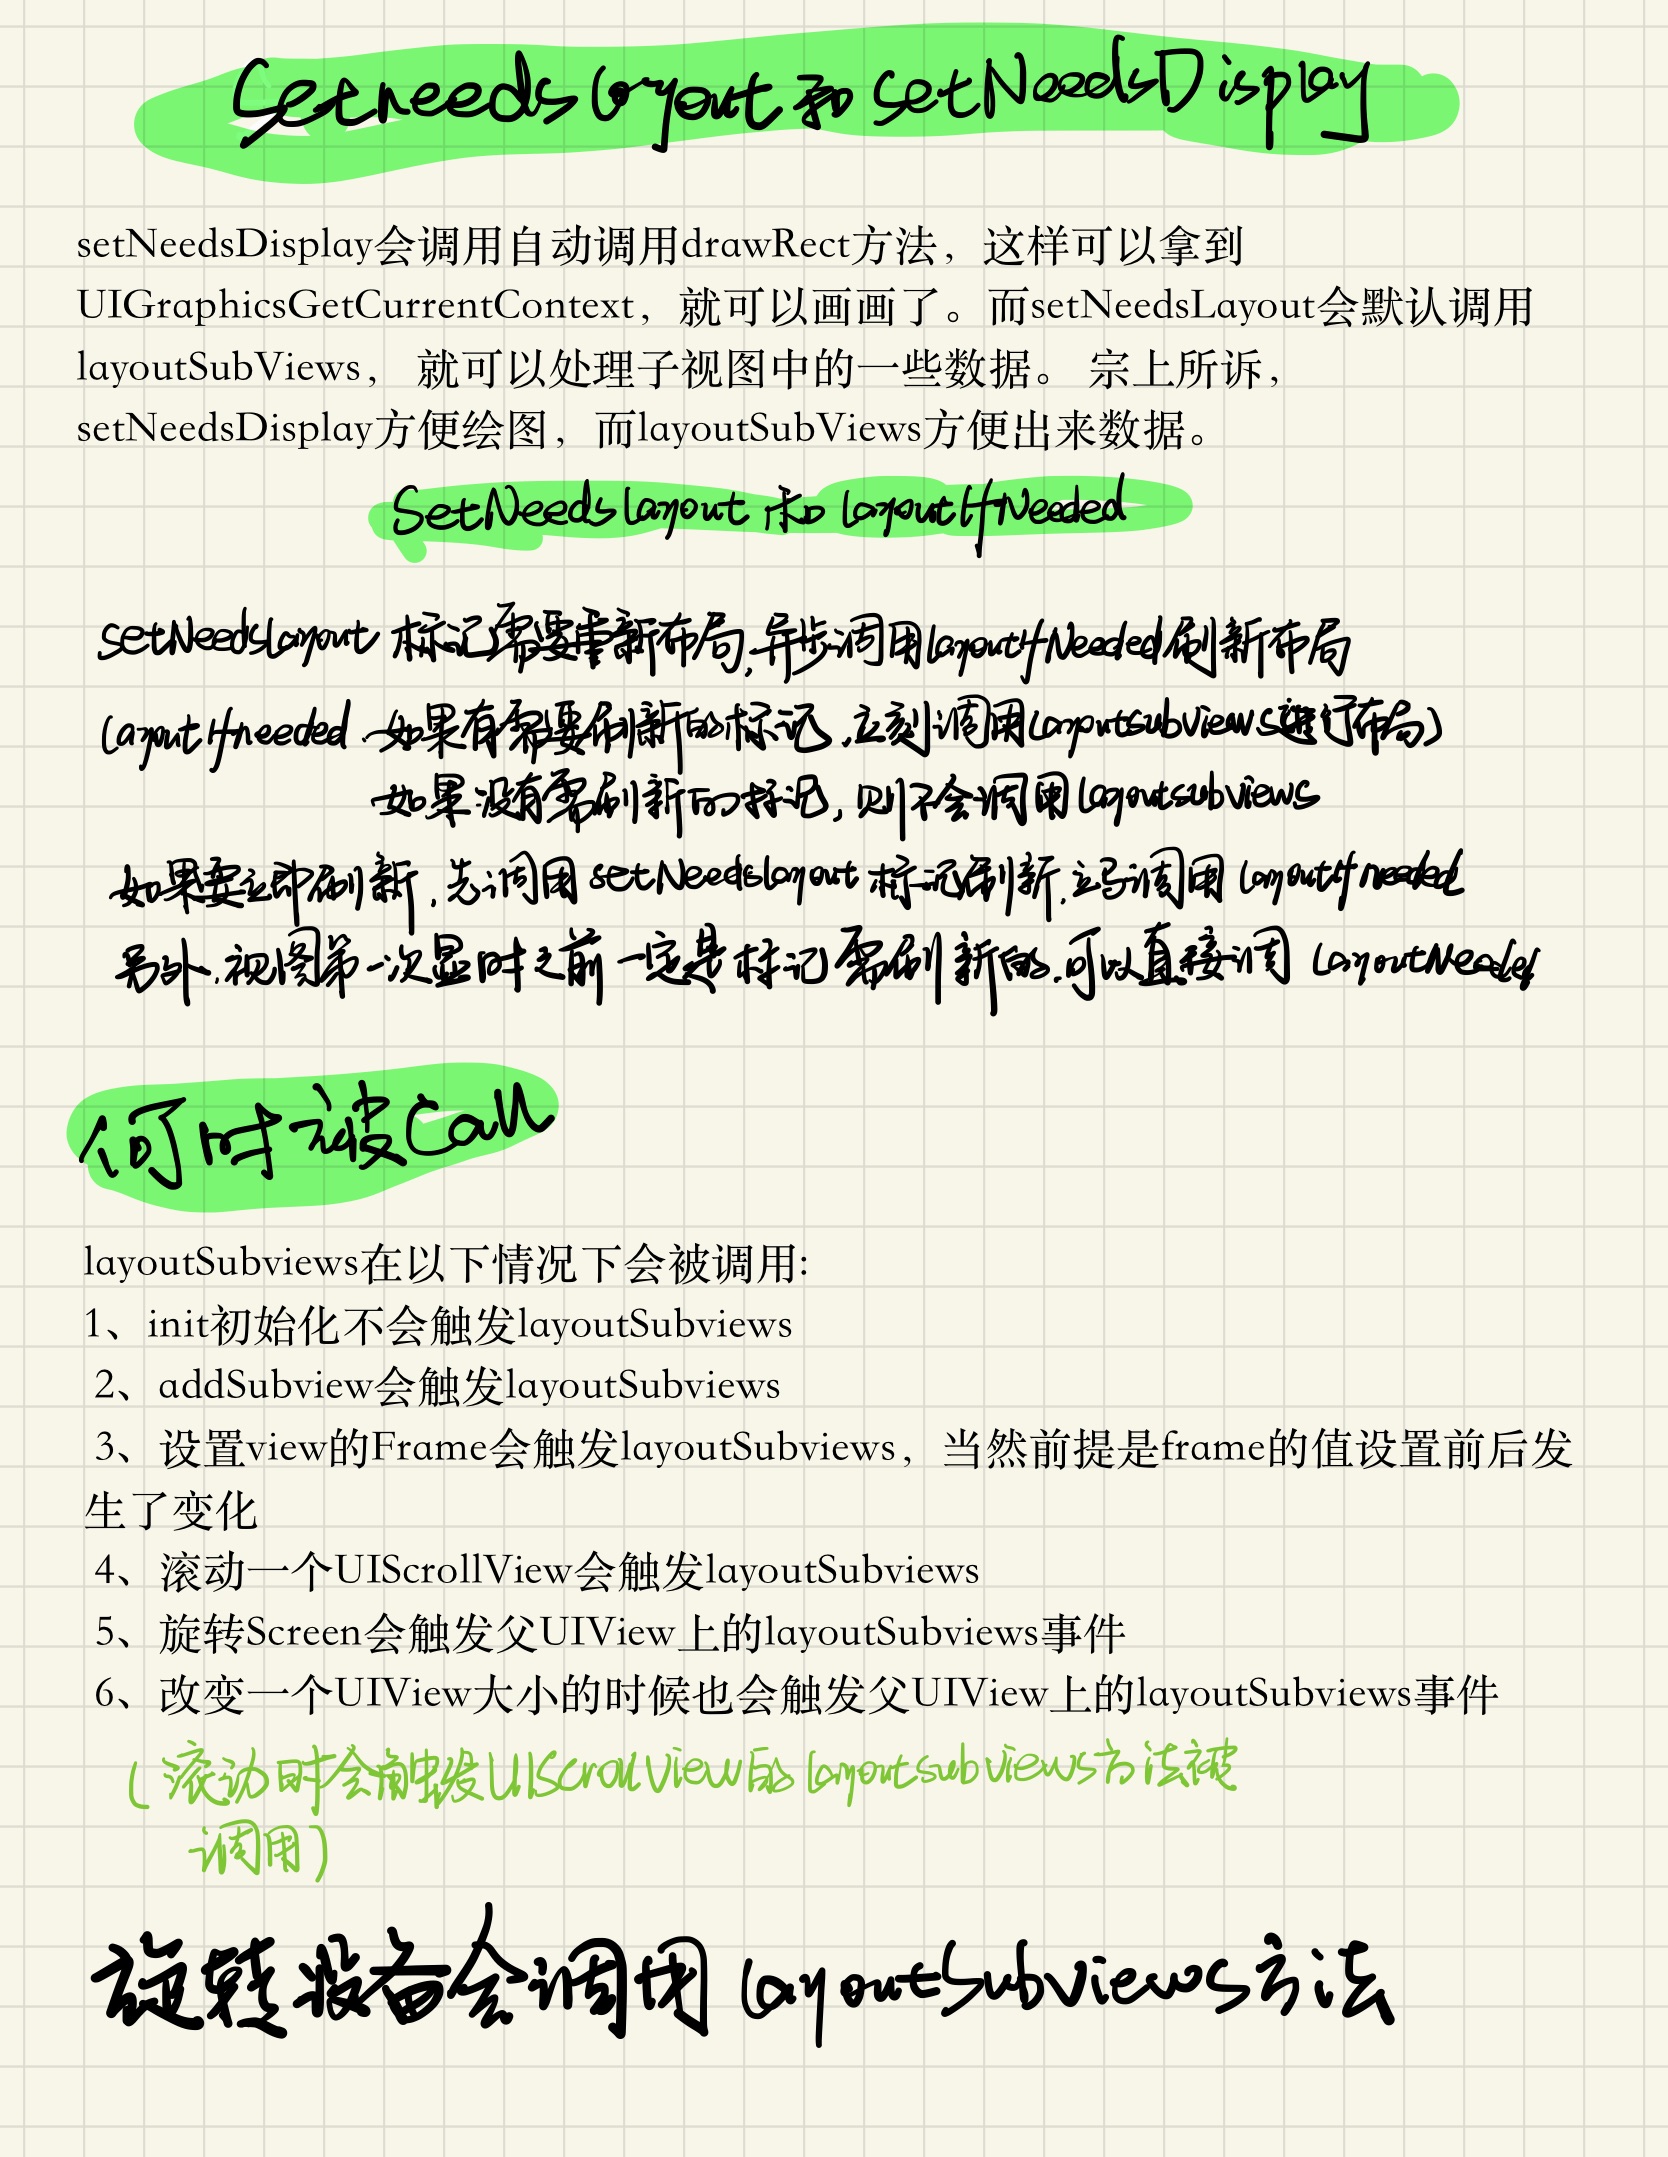 SetneedsLayout和setNeedsDisplay
setNeedsDisplay会调用自动调用drawRect方法，这样可以拿到
UIGraphicsGetCurrentContext，就可以画画了。而setNeedsLayout会默认调用
layoutSubViews， 就可以处理子视图中的一些数据。 宗上所诉，
setNeedsDisplay方便绘图，而layoutSubViews方便出来数据。
SetNeedsLayout 和 layoutIfNeeded
setNeedsLayout 标记需要重新布局,异步调用layoutIfNeeded刷新布局
layoutIfneeded.如果有需要刷新的标记,立刻调用layoutsubviews进行布局)
如果没有需刷新的标记,则不会调用layoutsubviews
如果要立即刷新,先调用setNeedsLayout 标记刷新,立马调用 layoutIfneeded
另外,视图第一次显时之前一定是标记需刷新的,可以直接调 LayoutNeeded
何时被Call
layoutSubviews在以下情况下会被调用:
1、init初始化不会触发layoutSubviews
2、addSubview会触发layoutSubviews
3、设置view的Frame会触发layoutSubviews，当然前提是frame的值设置前后发
生了变化
4、滚动一个UIScrollView会触发layoutSubviews
5、旋转Screen会触发父UIView上的layoutSubviews事件
6、改变一个UIView大小的时候也会触发父UIView上的layoutSubviews事件
(滚动时会触发UIScrollView的layoutsubviews方法被
调用)
旋转设备会调用layoutSubviews方法